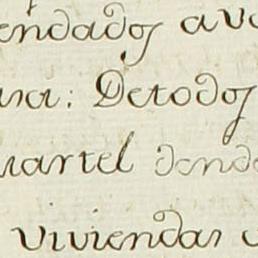 endados
una: Detodos
uartel dond
viviendas